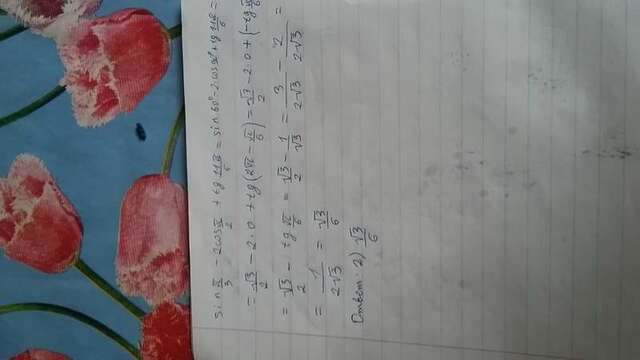 sin π/3 - 2cos π/2 + tg 11π/6 = sin 60° - 2·cos 90° + tg 11π/6 =
= √3/2 - 2·0 + tg(2π - π/6) = √3/2 - 2·0 + (-tg π/6
= √3/2 - tg π/6 = √3/2 - 1/√3 = 3/2√3 - 2/2√3 =
= 1/2√3 = √3/6
Ответ: 2) √3/6